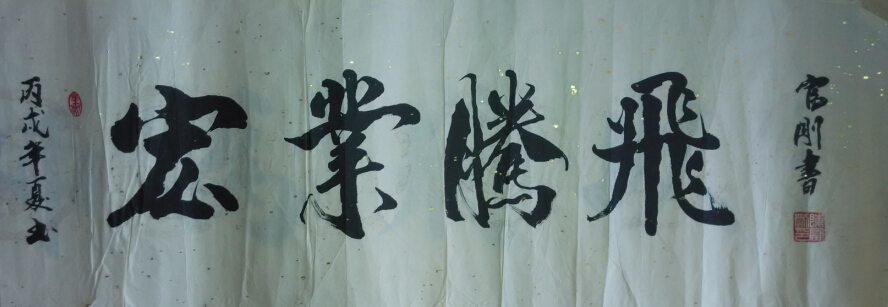 丙戌年夏书
宏業騰飛
官刚書